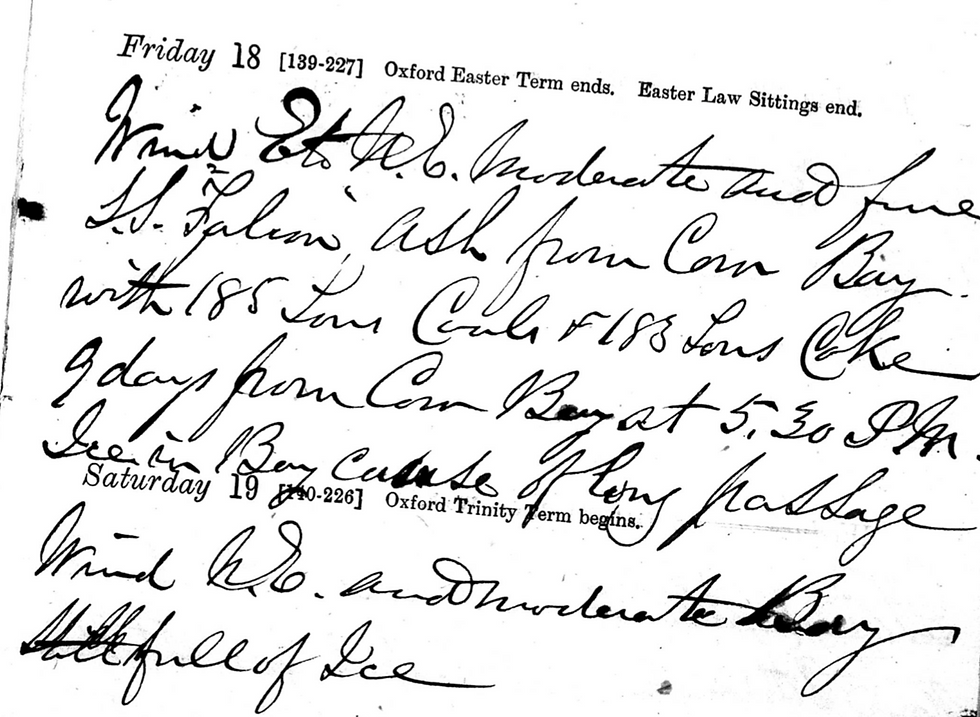 Friday 18 [139-227] Oxford Easter Term ends. Easter Law Sittings end.
Wind E to N.E. moderate and fine
S.S. "Falcon" Ash from Corn Bay
with 185 Tons Coals & 183 Tons Coke
9 days from Corn Bay at 5.30 P.M.
Ice in Bay cause of long passage
Saturday 19 [140-226] Oxford Trinity Term begins.
Wind N.E. and moderate Bay
still full of Ice